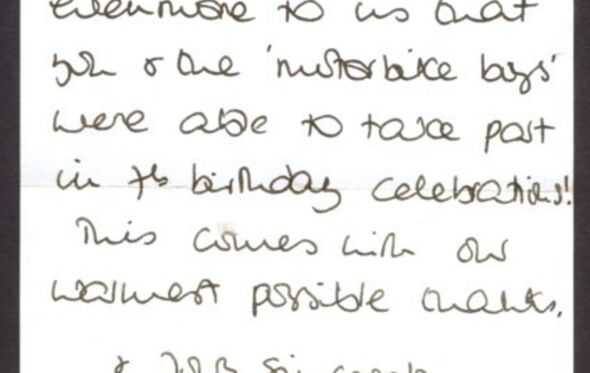 even more to us that
you & the 'motorbike boys'
were able to take part
in birthday celebrations!
This comes with our
warmest possible thanks.